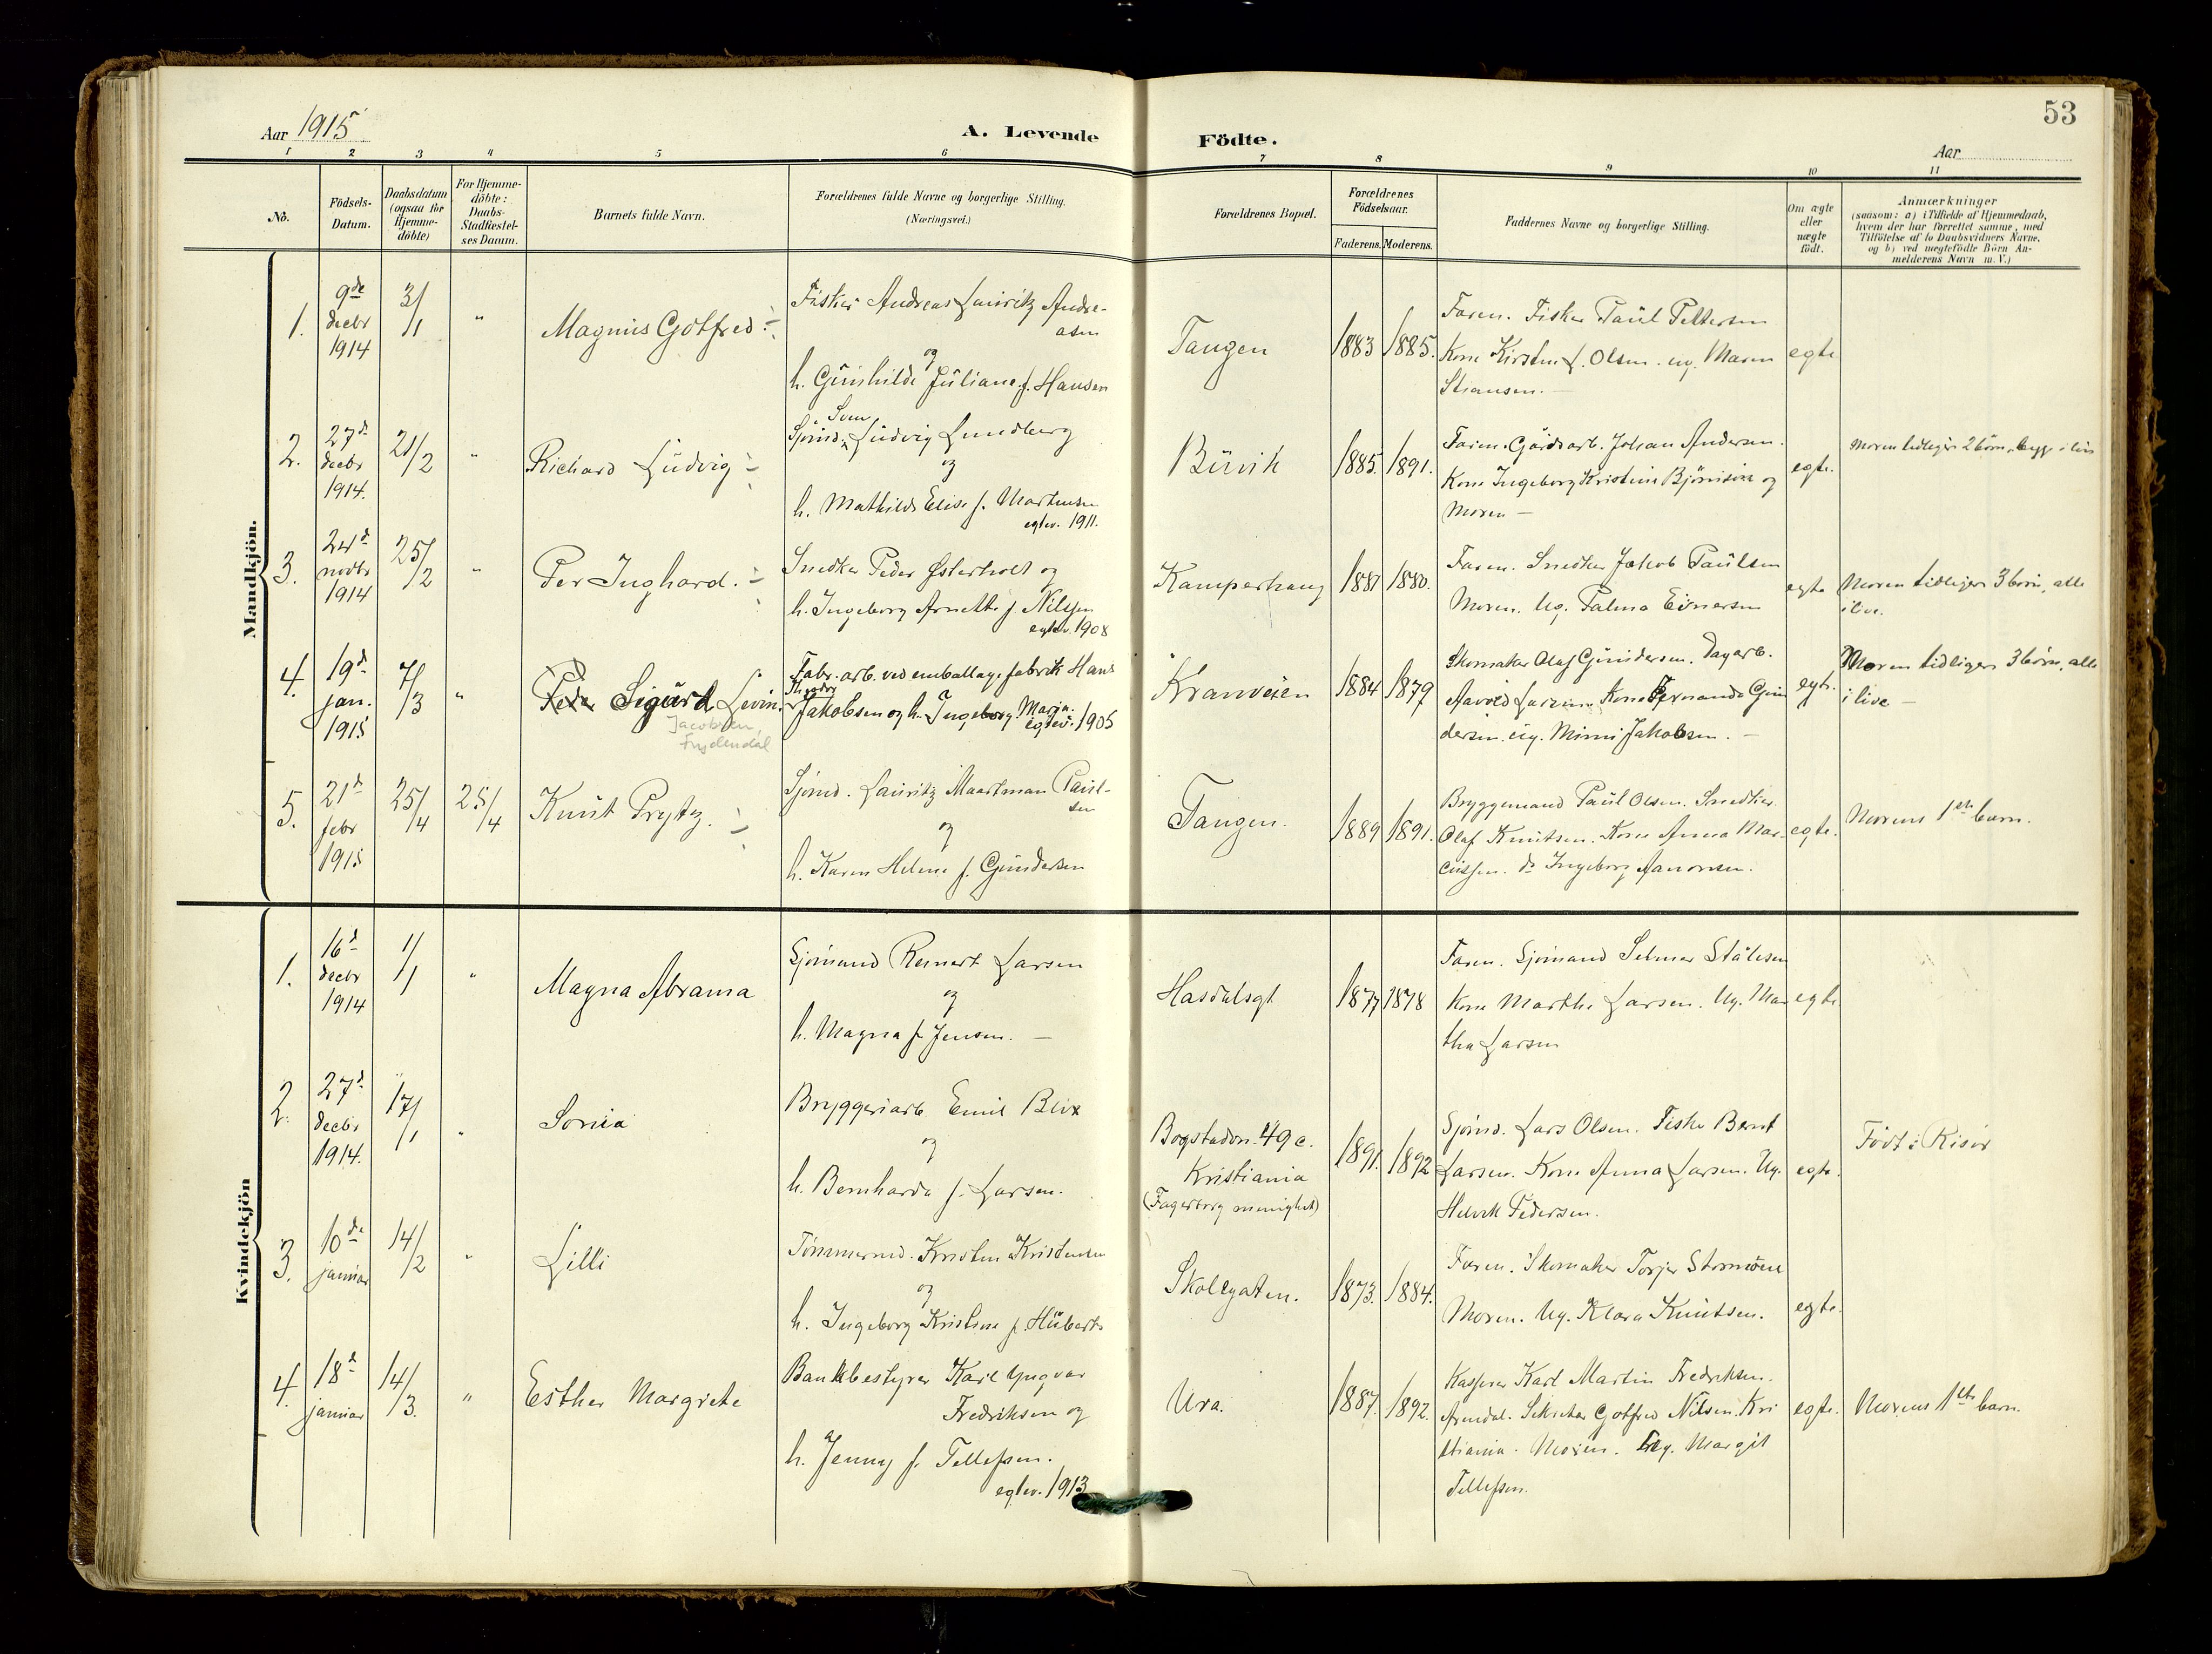 53
Aar 1915
A. Levende
Födte.
Aar
1 2 3 4 5 6 7 8 9 10 11
No.
Födsels-
Datum.
Daabsdatum
(ogsaa för
Hjemme-
döbte)
For Hjemme-
döbte:
Daabs-
Stadfæstel-
ses Datum.
Barnets fulde Navn.
Forældrenes fulde Navne og borgerlige Stilling.
(Næringsvei.)
Forældrenes Bopæl.
Forældrenes
Födselsaar.
Faderens. Moderens.
Faddernes Navne og borgerlige Stilling.
Om ægte
eller
uægte
födt.
Anmærkninger
(saasom: a) i Tilfælde af Hjemmedaab,
hvem der har forrettet samme, med
Tilföielse af to Daabsvidners Navne,
og b) ved uægtefödte Börn An-
melderens Navn m. V.)
Mandkjön.
1.
9de
decbr
1914
3/1
"
Magnus Gotfred
Fisker Andreas Lauritz Andre-
asen
og
h. Gunhilde Juliane f. Hansen
Tangen
1883
1885.
Faren. Fisker Paul Pettersen
Kone Kirsten f. Olsen. ug. Maren
Stiansen.
egte
2.
27d
decbr
1914.
21/2
"
Richard Ludvig
Sven
Sjömd. Ludvig Lundberg
og
h. Mathilde Elise f. Martinsen
egtev. 1911.
Buvik
1885.
1891.
Faren. Gårdsarb. Johan Andersen.
Kone Ingeborg Kristine Björnson og
Moren
egte.
Moren tidligere 2 börn, begge i live
3.
24d
novbr
1914
25/2
"
Per Inghard.
Snedker Peder Østerholt og
h. Ingeborg Arnette f. Nilsen
egtev. 1908
Kamperhaug
1881
1880.
Faren. Snedker Jakob Paulsen
Moren. Ug. Palma Einersen
egte
Moren tidligere 3 börn, alle
i live.
4.
19d
jan.
1915
7/3
"
Peder Sigurd Levin.
Jacobsen
Frydendal
Fabr. arb. ved emballagefabrik Hans
Jakobsen og h. Ingeborg Marja.
egtev. 1905
Kranveien
1884
1879
Skomaker Olaf Gundersen. Dagarb.
Kone Fernanda Gun
dersen. ug. Mimi Jakobsen.
egte.
Moren tidligere 3 börn, alle
i live
5.
21d
febr
1915
25/4
25/4
Knut Prytz.
Sjömd. Lauritz Maartman Paul-
sen
og
h. Karen Helene f. Gundersen
Tangen.
1889
1891.
Bryggemand Paul Olsen. Snedker
Olaf Knutsen. Kone Anna Mar-
cussen. do Ingeborg Aanonsen.
egte.
Morens 1ste barn.
Kvindekjön
1.
16d
decbr
1914
1/1
"
Magna Abrama
Sjömand Reinert Larsen
og
h. Magna f. Jensen.
Hasdalsgt.
1877
1878
Faren. Sjömand Selmer Stålesen
Kone Marthe Larsen. Ug. Mar
tha Larsen
egte.
2.
27d
decbr
1914.
17/1
"
Sonia
Bryggeriarb. Emil Blix
og
h. Bernharda f. Larsen.
Bogstadvn. 49c.
Kristiania
(Fagerborg menighet)
1891.
1892
Sjömd. Lars Olsen. Fisker Bernt
Larsen. Kone Anna Larsen. Ug.
Pedersen.
egte.
Född i Risör
3.
10de
januar
14/2
"
Lilli
Tömmermd. Kristen Kristensen
og
h. Ingeborg Kristine f. Huberts
Skolegaten.
1873.
1884.
Faren. Skomaker Torjer
Moren. Ug. Klara Knutsen.
egte.
4.
18d
januar
14/3.
"
Esther Margrete
Bankbestyrer Karl Yngvar
Fredriksen og
h. Jenny f. Tellefsen.
egtev. 1913
Ura.
1887.
1892.
Kasserer Karl Martin Fredriksen.
Arendal. Sekretær Gotfred Nilsen. Kri
stiania. Moren. Ug. Margit
Tellefsen.
egte.
Morens 1ste barn.